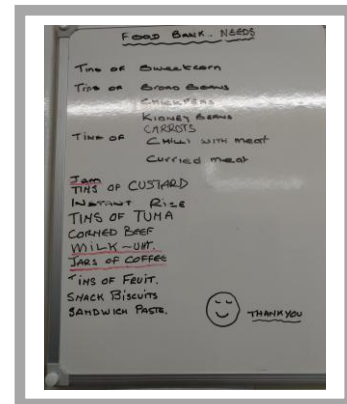 FOOD BANK. NEEDS
TINS OF SWEETCORN
TINS OF BROAD BEANS
CHICKPEAS
KIDNEY BEANS
CARROTS
TINS OF CHILLI WITH MEAT
CURRIED MEAT
Jam
TINS OF CUSTARD
INSTANT RICE
TINS OF TUNA
CORNED BEEF
MILK - UHT.
JARS OF COFFEE
TINS OF FRUIT.
SNACK BISCUITS
SANDWICH PASTE.
THANK YOU